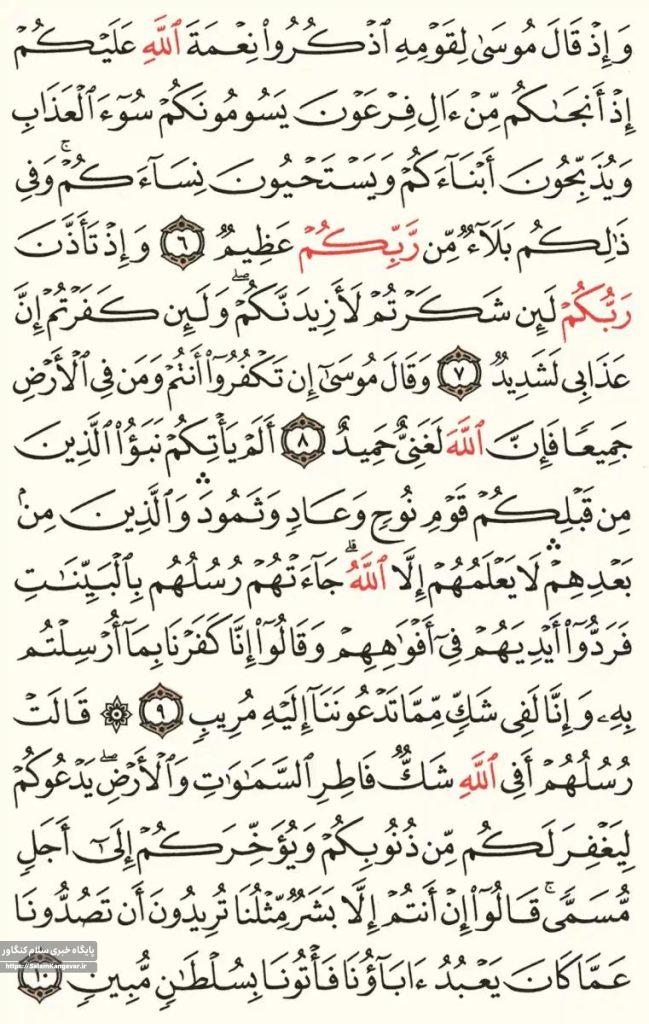 وَإِذْ قَالَ مُوسَىٰ لِقَوْمِهِ ٱذْكُرُوا۟ نِعْمَةَ ٱللَّهِ عَلَيْكُمْ
إِذْ أَنجَىٰكُم مِّنْ ءَالِ فِرْعَوْنَ يَسُومُونَكُمْ سُوٓءَ ٱلْعَذَابِ
وَيُذَبِّحُونَ أَبْنَآءَكُمْ وَيَسْتَحْيُونَ نِسَآءَكُمْ ۚ وَفِى
ذَٰلِكُم بَلَآءٌ مِّن رَّبِّكُمْ عَظِيمٌ ٦ وَإِذْ تَأَذَّنَ
رَبُّكُمْ لَئِن شَكَرْتُمْ لَأَزِيدَنَّكُمْ ۖ وَلَئِن كَفَرْتُمْ إِنَّ
عَذَابِى لَشَدِيدٌ ٧ وَقَالَ مُوسَىٰٓ إِن تَكْفُرُوٓا۟ أَنتُمْ وَمَن فِى ٱلْأَرْضِ
جَمِيعًا فَإِنَّ ٱللَّهَ لَغَنِىٌّ حَمِيدٌ ٨ أَلَمْ يَأْتِكُمْ نَبَؤُا۟ ٱلَّذِينَ
مِن قَبْلِكُمْ قَوْمِ نُوحٍ وَعَادٍ وَثَمُودَ ۛ وَٱلَّذِينَ مِنۢ
بَعْدِهِمْ ۛ لَا يَعْلَمُهُمْ إِلَّا ٱللَّهُ ۚ جَآءَتْهُمْ رُسُلُهُم بِٱلْبَيِّنَـٰتِ
فَرَدُّوٓا۟ أَيْدِيَهُمْ فِىٓ أَفْوَٰهِهِمْ وَقَالُوٓا۟ إِنَّا كَفَرْنَا بِمَآ أُرْسِلْتُم
بِهِۦ وَإِنَّا لَفِى شَكٍّ مِّمَّا تَدْعُونَنَآ إِلَيْهِ مُرِيبٍ ٩ ۞ قَالَتْ
رُسُلُهُمْ أَفِى ٱللَّهِ شَكٌّ فَاطِرِ ٱلسَّمَـٰوَٰتِ وَٱلْأَرْضِ ۖ يَدْعُوكُمْ
لِيَغْفِرَ لَكُم مِّن ذُنُوبِكُمْ وَيُؤَخِّرَكُمْ إِلَىٰٓ أَجَلٍ
مُّسَمًّى ۚ قَالُوٓا۟ إِنْ أَنتُمْ إِلَّا بَشَرٌ مِّثْلُنَا تُرِيدُونَ أَن تَصُدُّونَا
عَمَّا كَانَ يَعْبُدُ ءَابَآؤُنَا فَأْتُونَا بِسُلْطَـٰنٍ مُّبِينٍ ١٠
پایگاه خبری سلام کنگاور
https://SalamKangavar.ir